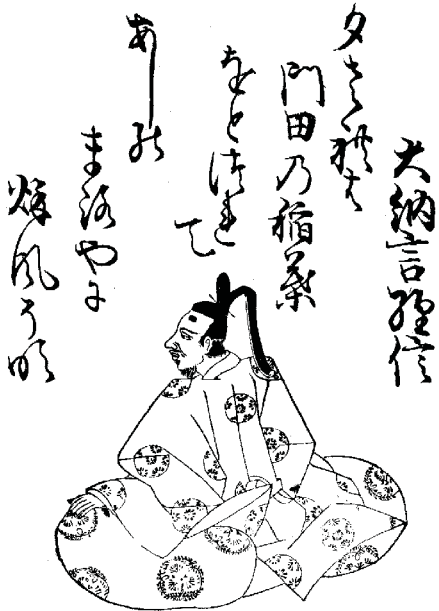 大納言経信
夕されは
門田乃稲葉
をとつれ
て
あしの
まろやに
秋風そふく